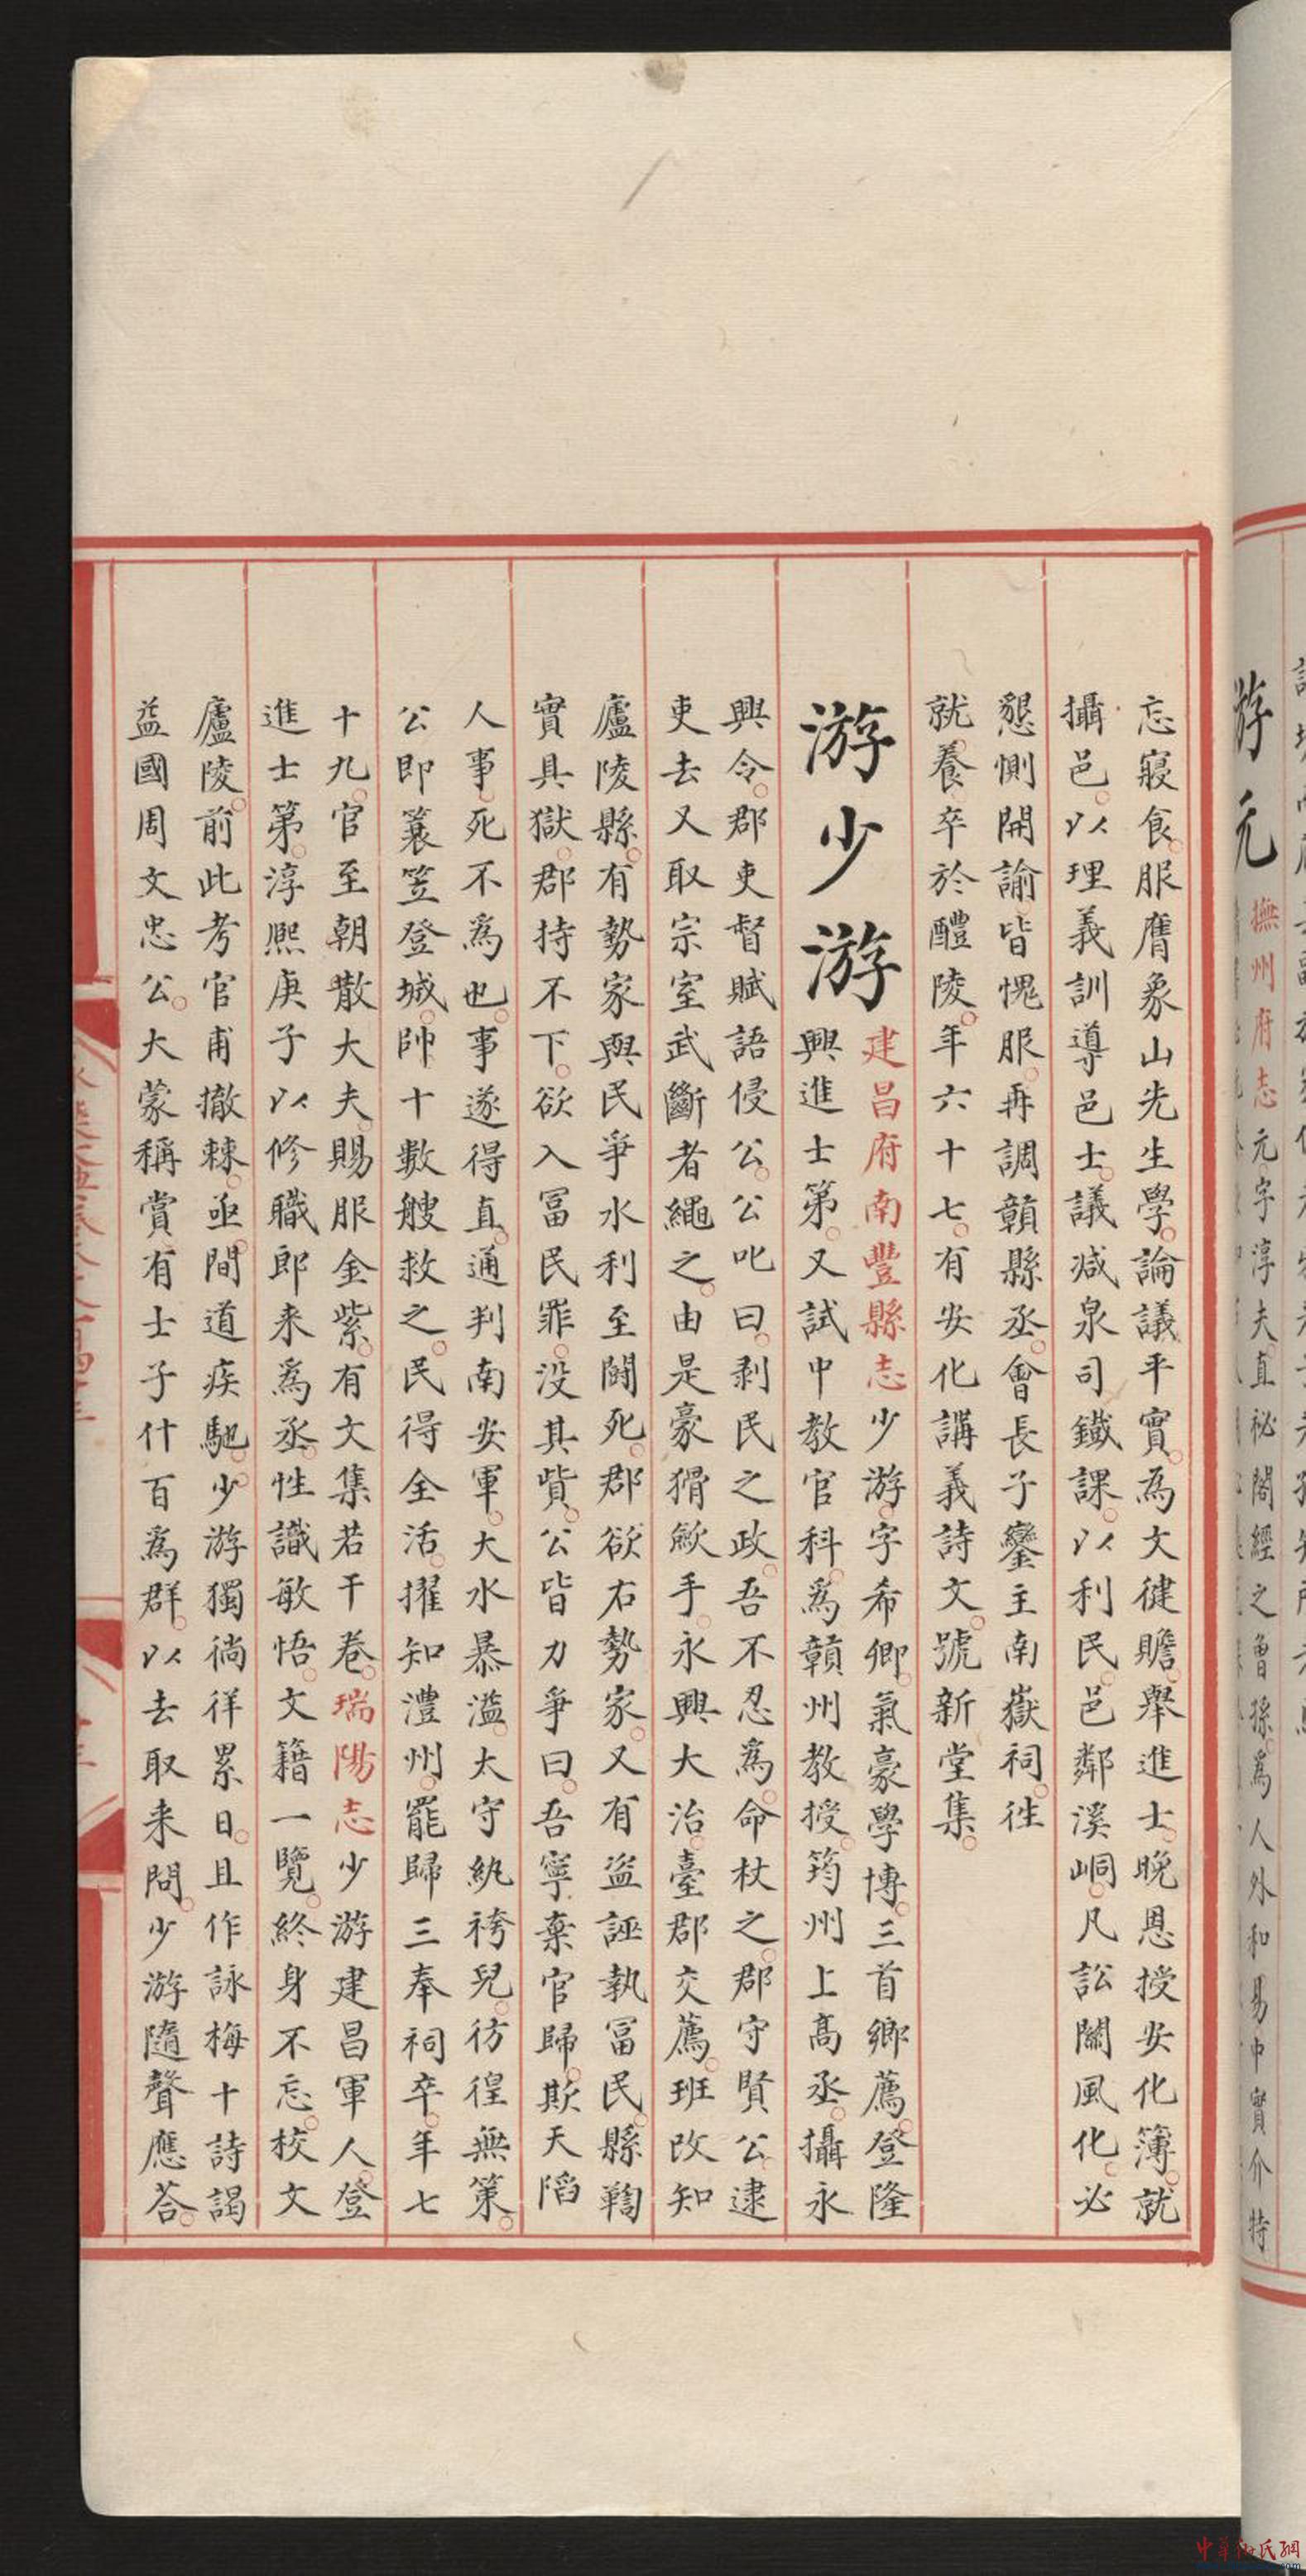 忘寢食服膺象山先生學論議平實為文健贍舉進士晚恩授安化簿就
攝邑以理義訓導邑士議減泉司鐵課以利民邑鄰溪峒凡訟關風化必
懇惻開諭皆愧服再調贛縣丞會長子鑾主南嶽祠徃
就養卒於醴陵年六十七有安化講義詩文號新堂集
游少游
建昌府南豐縣志少游字希卿氣豪學博三首鄉薦登隆
興進士第又試中教官科為贛州教授筠州上高丞攝永
興令郡吏督賦語侵公公叱曰剥民之政吾不忍為命杖之郡守賢公逮
吏去又取宗室武斷者繩之由是豪猾歛手永興大治臺郡交薦班改知
廬陵縣有勢家與民爭水利至鬪死郡欲右勢家又有盜誣執冨民縣鞫
實具獄郡持不下欲入冨民罪没其貲公皆力爭曰吾寧棄官歸欺天陷
人事死不為也事遂得直通判南安軍大水暴溢太守紈袴兒彷徨無策
公即簑笠登城帥十數艘救之民得全活擢知澧州罷歸三奉祠卒年七
十九官至朝散大夫賜服金紫有文集若干卷瑞陽志少游建昌軍人登
進士第淳熙庚子以修職郎来為丞性識敏悟文籍一覽終身不忘校文
廬陵前此考官甫撤棘亟間道疾馳少游獨徜徉累日且作詠梅十詩謁
益國周文忠公大蒙稱賞有士子什百為群以去取来問少游隨聲應荅
游元
撫州府志元字淳夫直祕閣經之曾孫為人外和易中實介特
中華游氏網